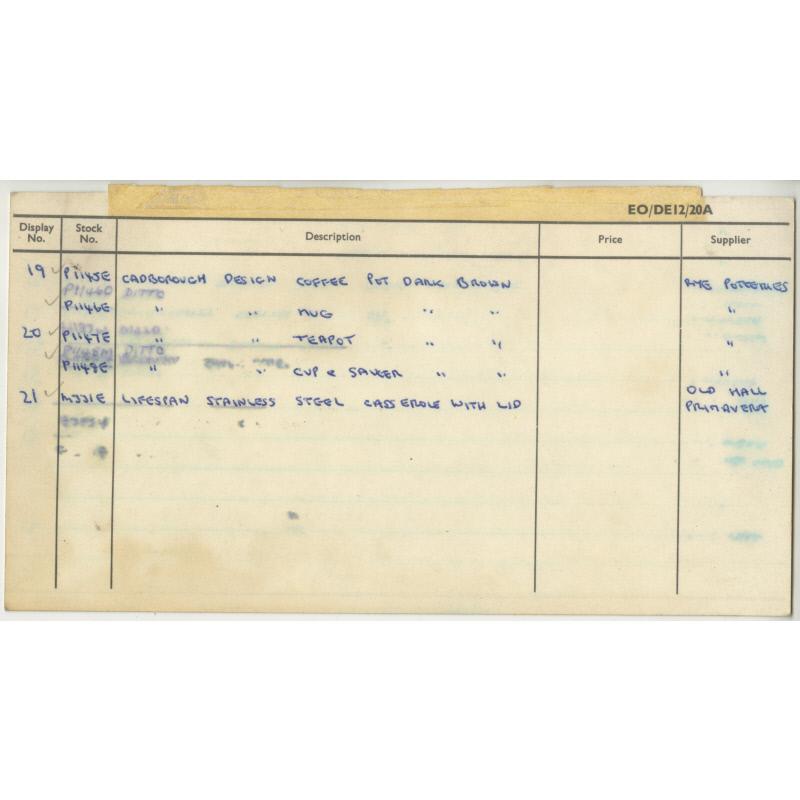 EO/DE12/20A
Display No. Stock No. Description Price Supplier
19 P1145E CADBOROUGH DESIGN COFFEE POT DARK BROWN RYE POTTERIES
P1146D DITTO
P1146E " " MUG " " "
DITTO
20 P1147E " " TEAPOT " " "
DITTO
P1148E " " CUP & SAUCER " " "
21 LIFESPAN STAINLESS STEEL CASSEROLE WITH LID OLD HALL
PRIMAVERA